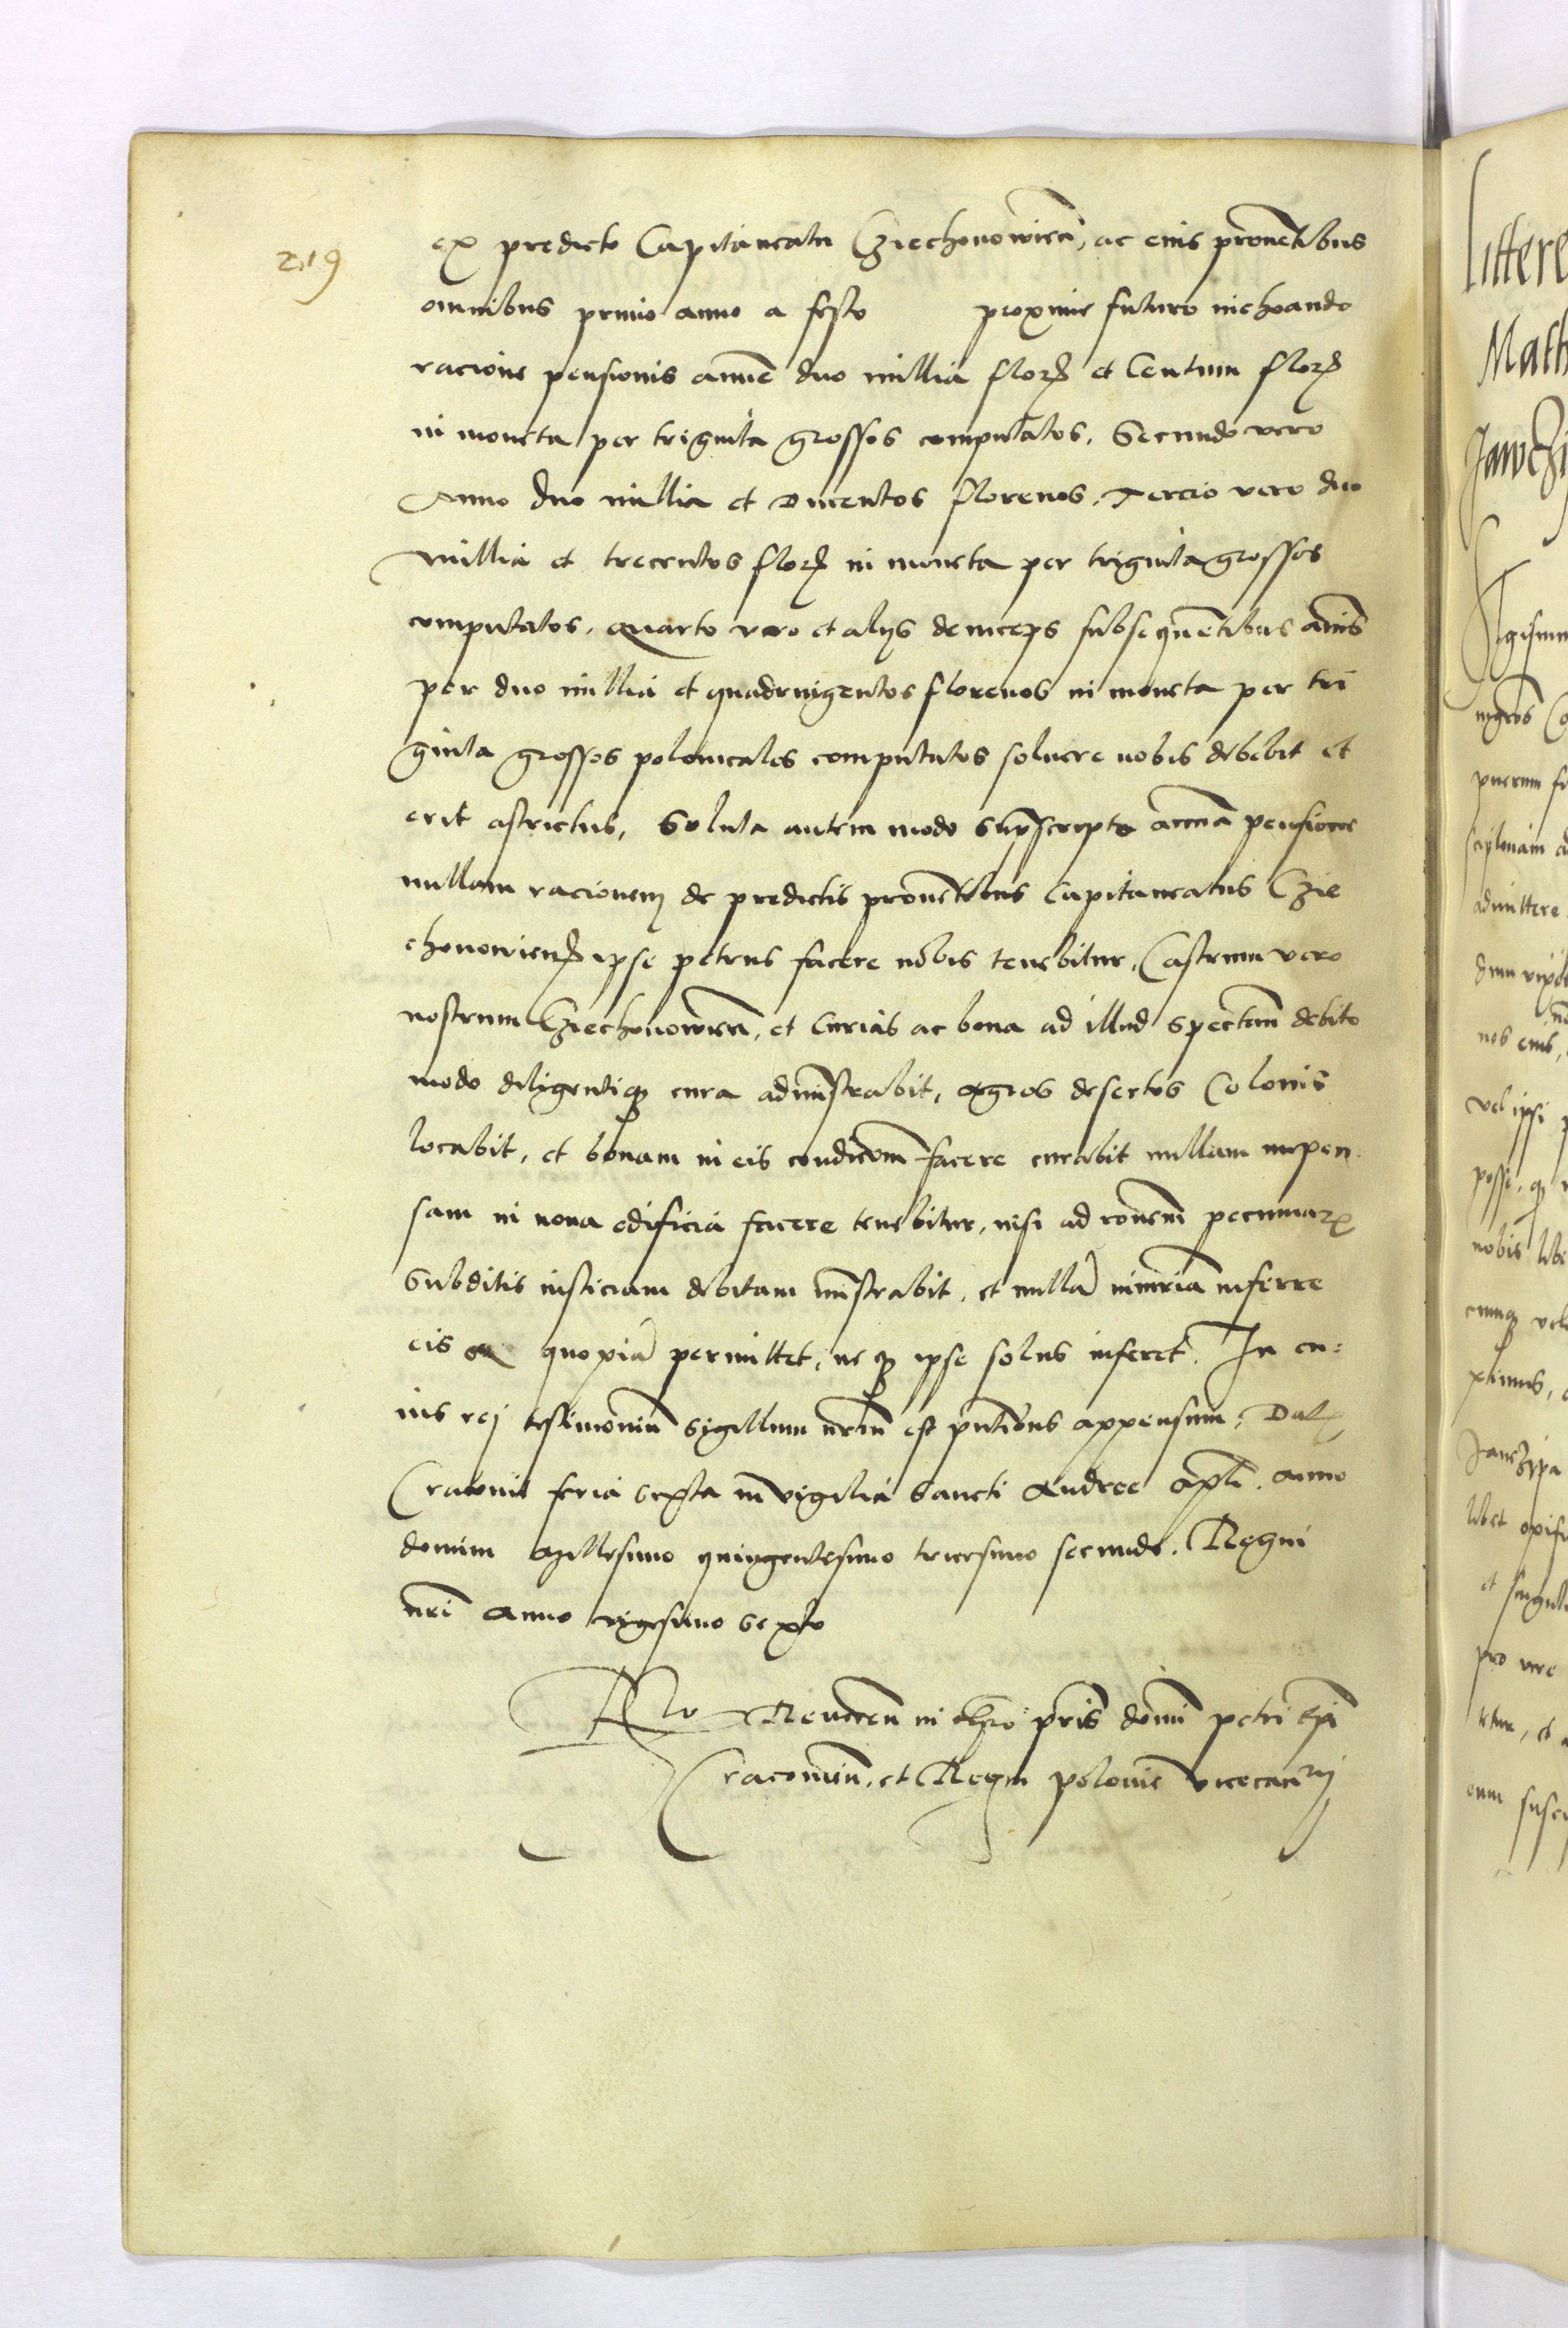 219
ex predicto Capitaneatu Cziechonowien̄, ac eius proventibus
omnibus primo anno a festo proxime futuro inchoando
racione pensionis annue duo millia floꝝ et Centum floꝝ
in moneta per triginta grossos computatos. Secundo vero
Anno duo millia et Ducentos florenos, Tercio vero duo
millia et trecentos floꝝ in moneta per triginta grossos
computatos, quarto vero et alijs deinceps subsequētibus annis
per duo millia et quadringentos florenos in moneta per tri
ginta grossos polonicales computatos soluere nobis debebit et
erit astrictus, Soluta autem modo supscripto annua pensione
nullam racionem de predictis prouētibus Capitaneatus Czie
chonowien̄ ipse petrus facere nobis tenebitur, Castrum vero
nostrum Cziechonowien̄, et Curias ac bona ad illud spectan̄ debito
modo diligentiqꝫ cura administrabit, agros desertos Colonis
locabit, et bonam in eis condicōm facere curabit nullam impen
sam in noua edificia facere tenebitur, nisi ad rōnem pecuniaꝝ
Subditis insticiam debitam mīstrabit, et nullā iniuriam inferre
eis quopiā permittet, neqꝫ ipse solus inferet. In cu=
ius rej testimoniū Sigillum nrm̄ est pn̄tibus appensum, Dat
Cracouie feria sexta in vigilia Sancti Andree apli. anno
domini Millesimo quingentesimo tricesimo secundo. Regni
nri anno vigesimo sexto
Rlo Reuerēn in chro pr̄is domī petri epī
Cracouien̄, et Regni polonie vicecan̄rij
littere
Math
Jawczi
Sigismun
puerum
admittere
nos eius,
vel ipsi
posse, qꝫ
et singuli
pro vere